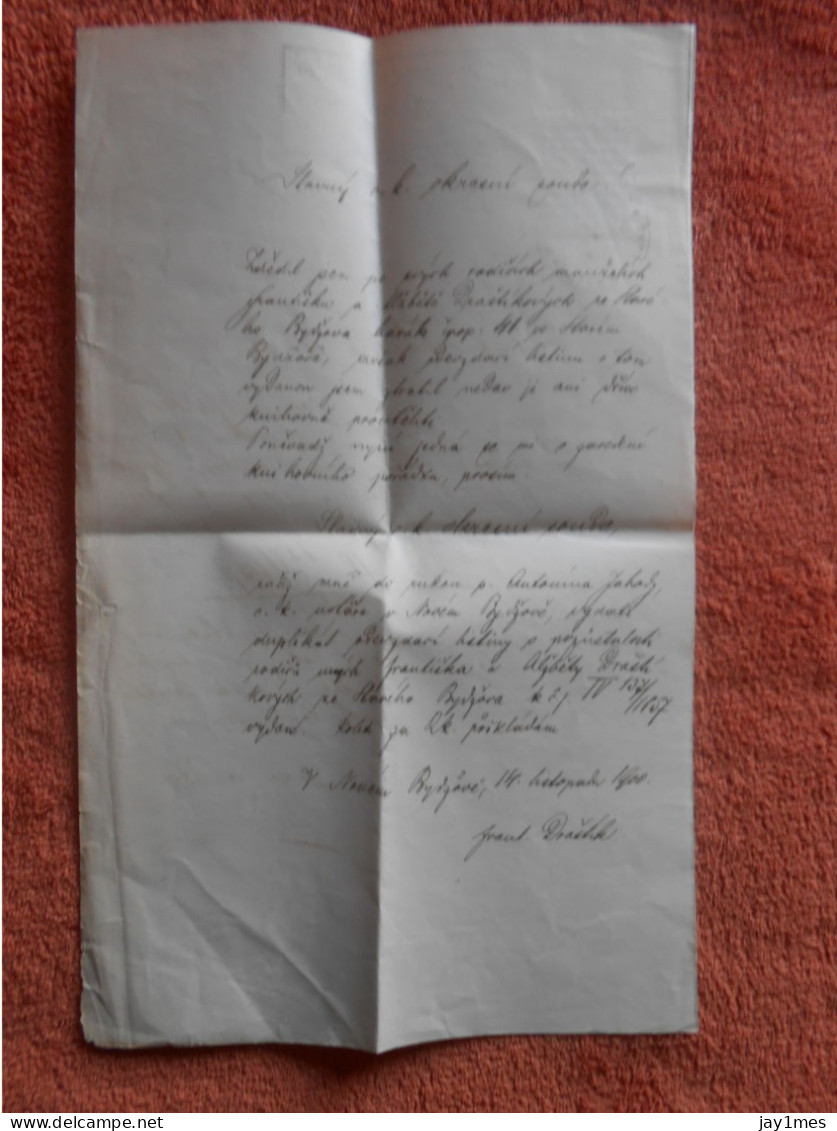 Slavný c. k. okresní soude!
Zdědil jsem po svých rodičích manželích
Františku a Alžbětě Draštíkových ze Staré-
ho Bydžova barák čpop. 41 ve Starém
Bydžově, avšak odevzdací listinu o tom
vydanou jsem ztratil nedav je ani dříve
knihovně
Poněvadž nyní jedná se mi o zavedení
knihovního pořádku, prosím
Slavný c. k. okresní soude,
račiž mně do rukou p. Antonína Jahody,
c. k. notáře v Novém Bydžově, vydati
duplikát odevzdací listiny o pozůstalosti
rodičů mých Františka a Alžběty Draští-
kových ze Starého Bydžova k č. j. IV 137/
/1857
vydan. Kolek za 2k. přikládám
V Novém Bydžově, 14. listopadu 1900.
Frant. Draštík
jay1mes